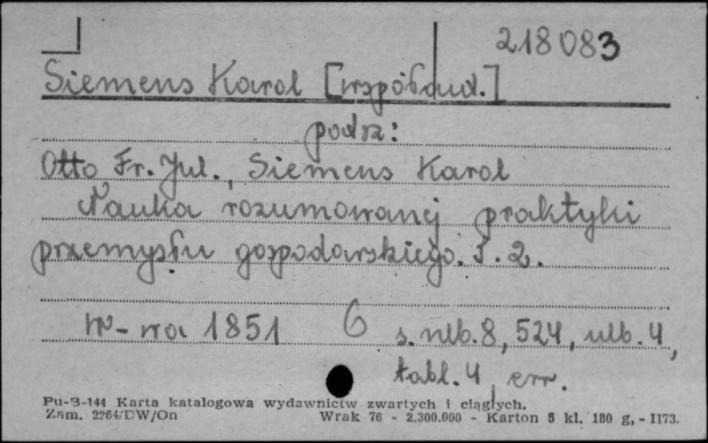 218083
Siemens Karol [współaut.]
podsz:
Otto Fr. Jul., Siemens Karol
Nauka rozumowanej praktyki
przemysłu gospodarskiego. T. 2.
W-wa 1851 6 s. nlb. 8, 524, nlb. 4,
tabl. 4, err.
Pu-B-144 Karta katalogowa wydawnictw zwartych i ciągłych.
Zam. 2264/DW/On Wrak 76 - 2.300.000 - Karton 5 kl. 180 g, - II73.